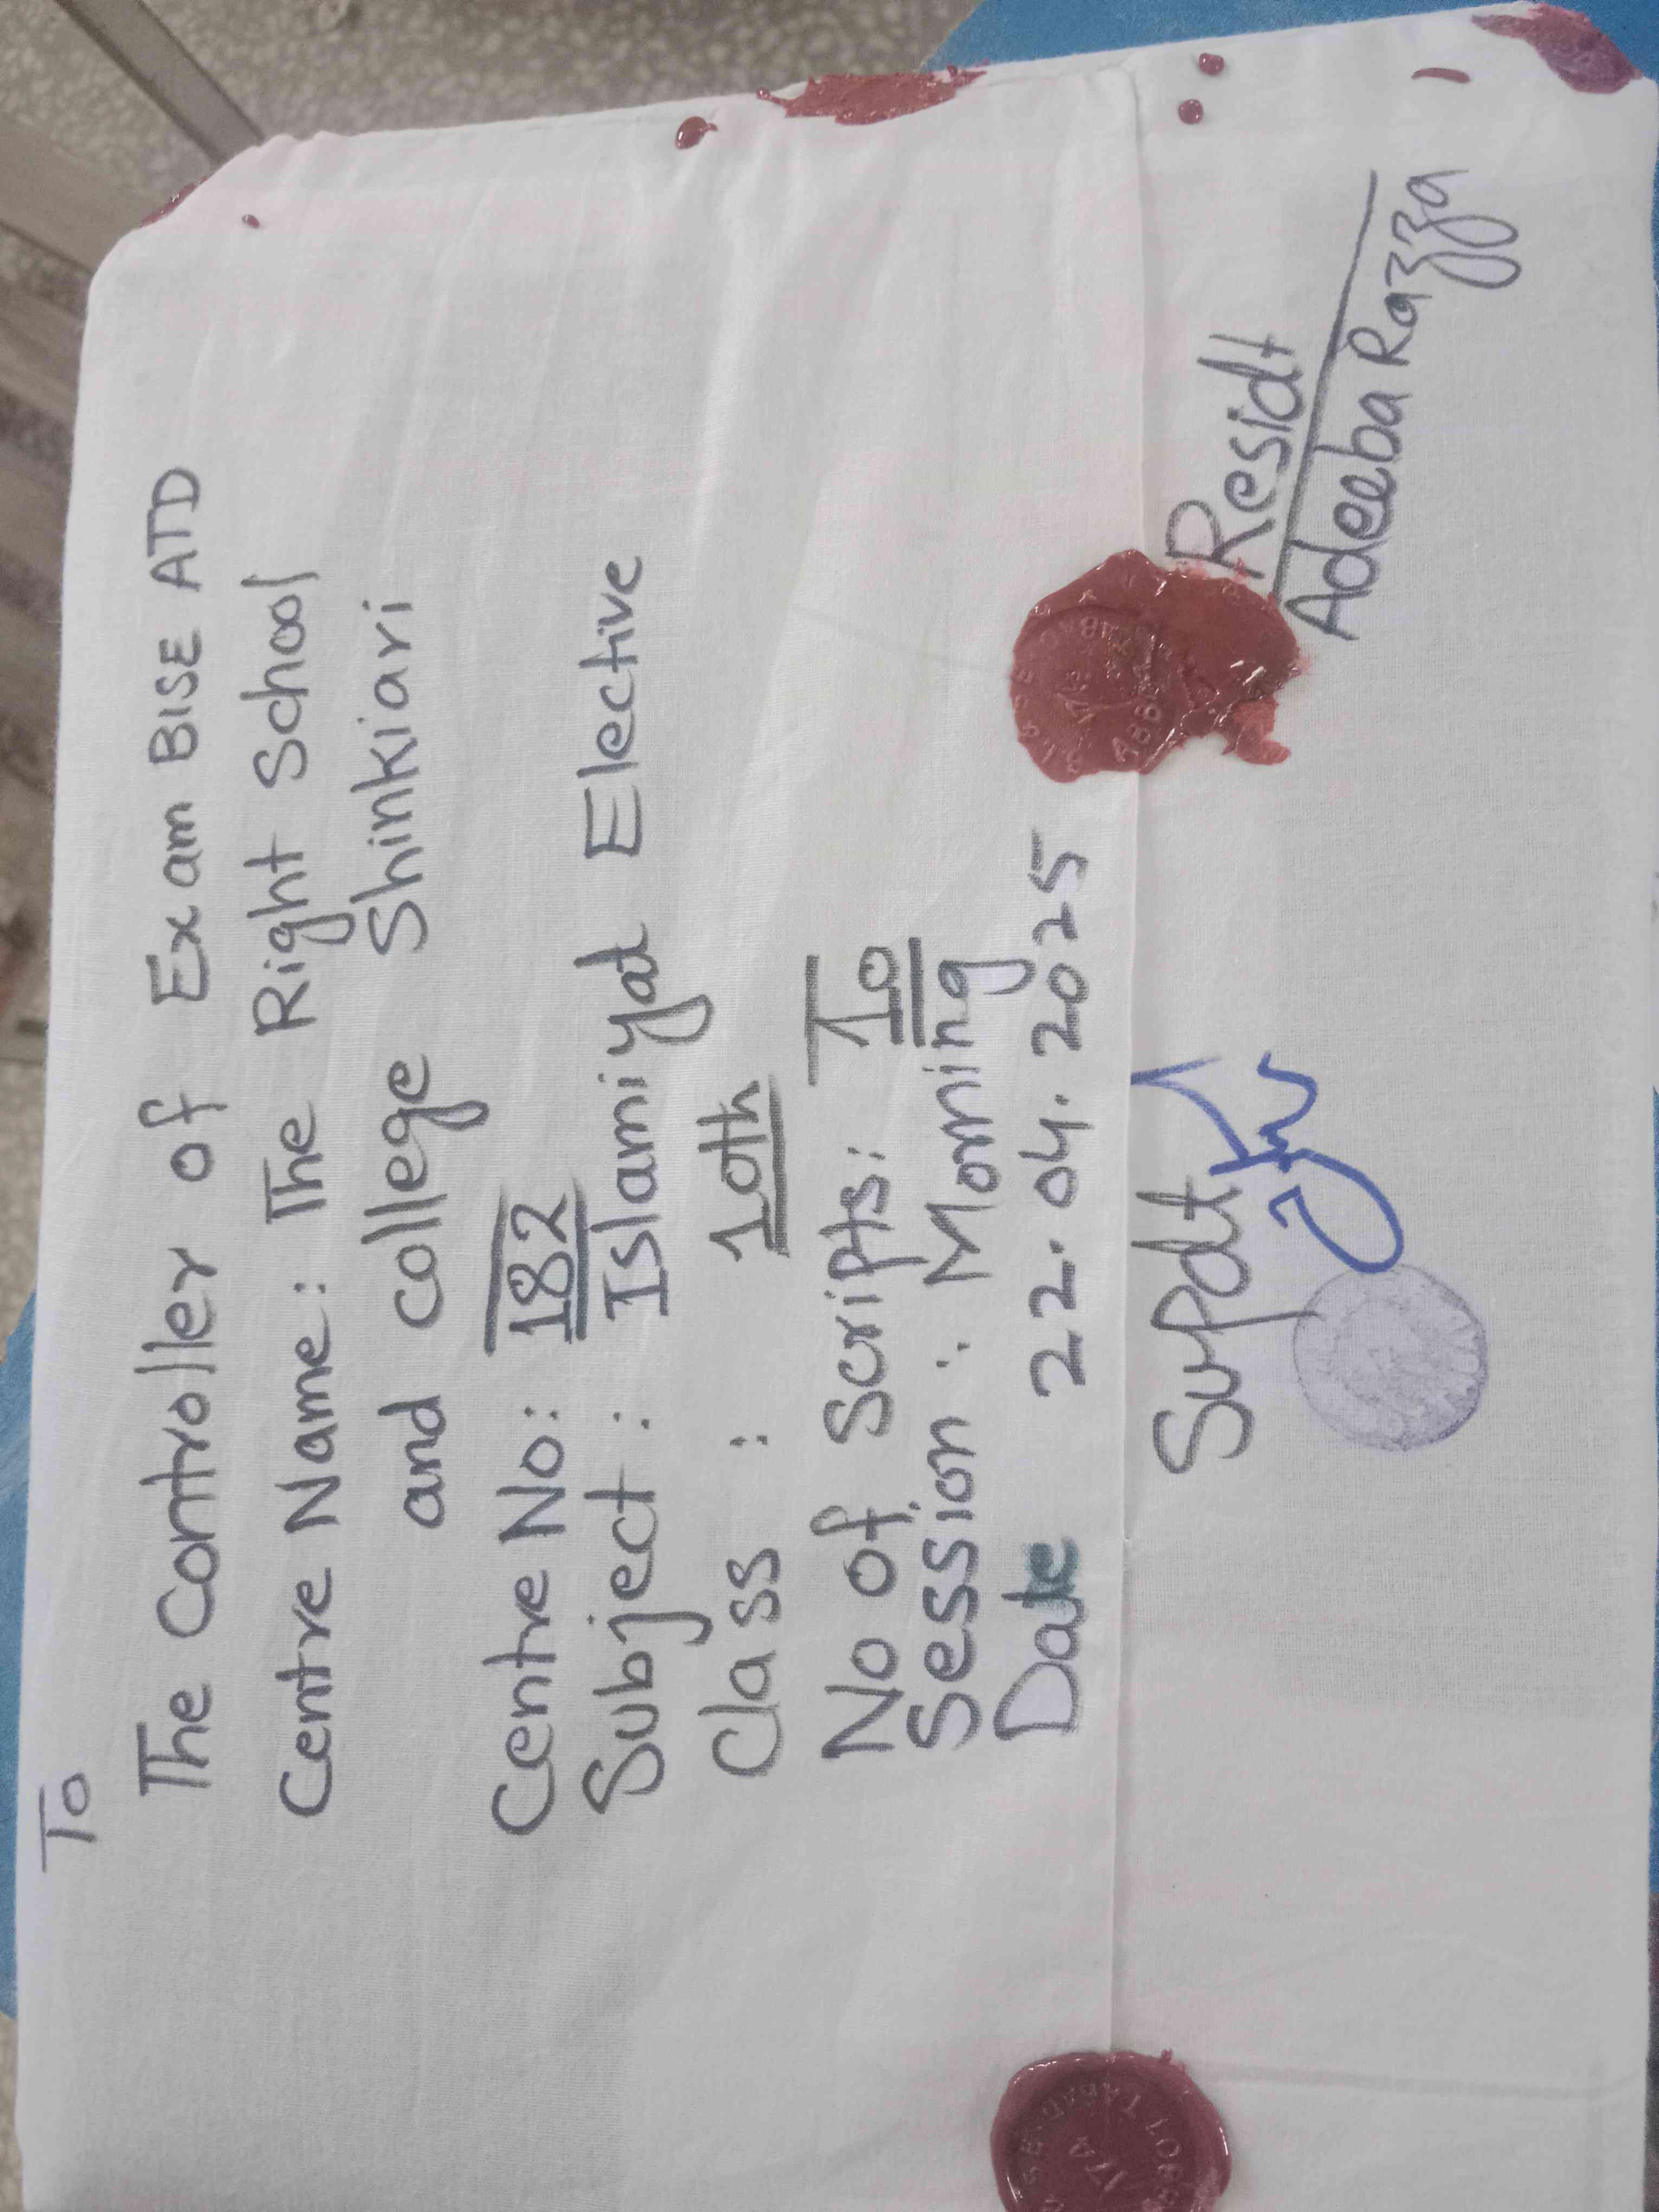 To
The Controller of Exam BISE ATD
Centre Name: The Right School
and college Shinkiari
Centre No: 182
Subject: Islamiyat Elective
Class : 10th
No of Scripts: 10
Session: Morning
Date 22.04.2025
Supdt
Residt
Adeeba Razza
17A